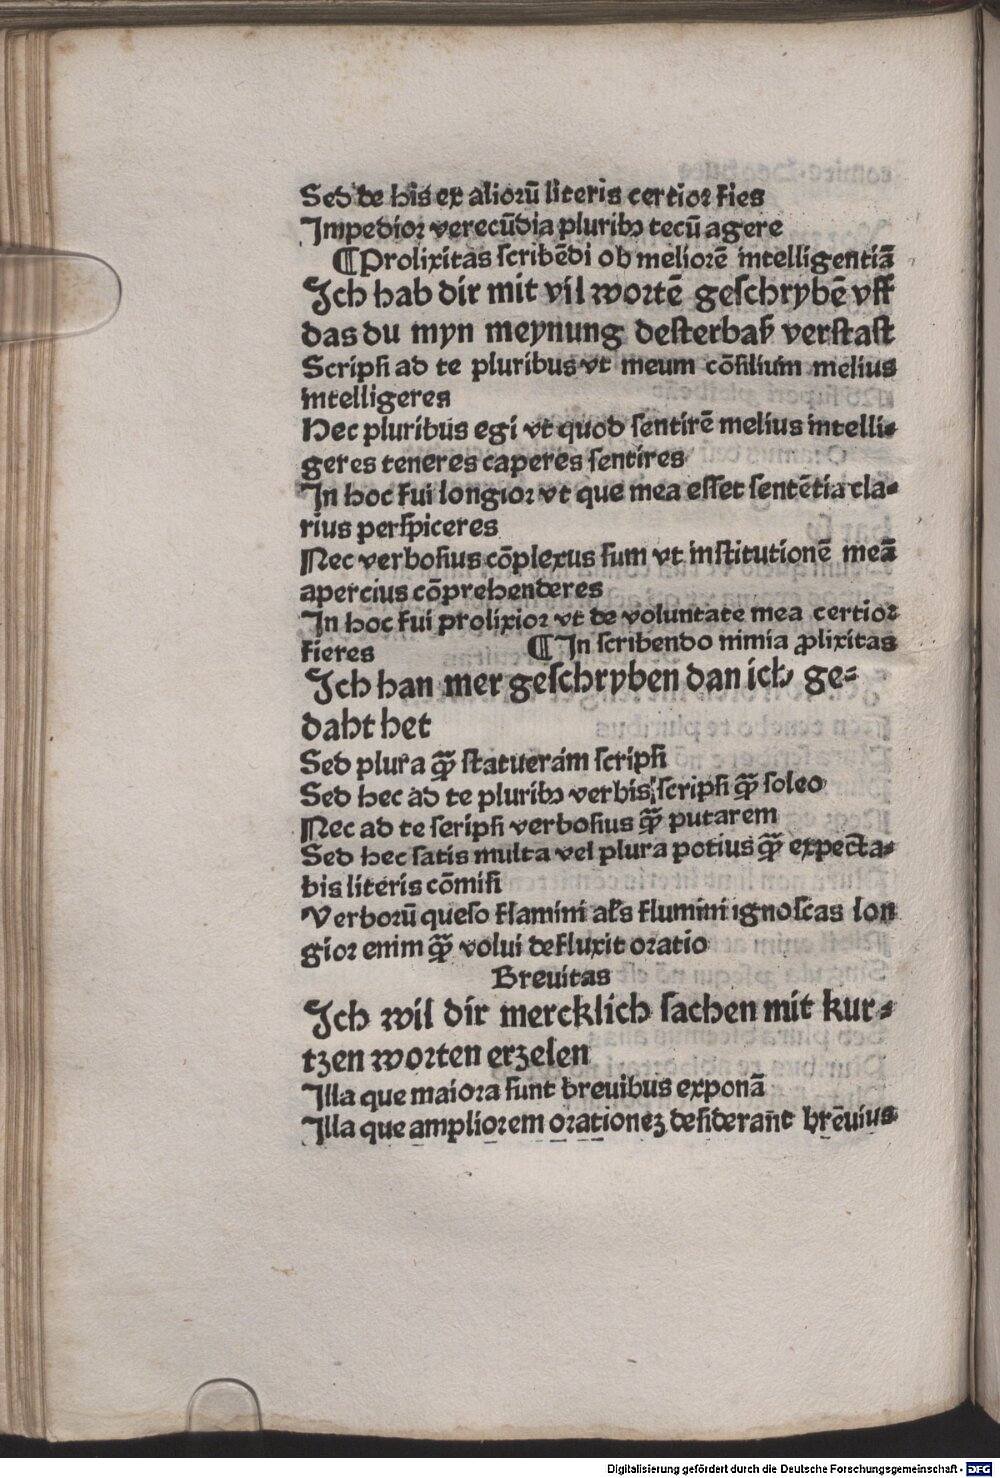 Sed de his ex aliorū literis certior fies
Impedior verecūdia pluribꝫ tecū agere
¶ Prolixitas scribēdi ob meliorē intelligentiā
Ich hab dir mit vil wortē geschrybē vff
das du myn meynung desterbaß verstast
Scripsi ad te pluribus vt meum cōsilium melius
intelligeres
Hec pluribus egi vt quod sentirē melius intelli⸗
geres teneres caperes sentires
In hoc fui longior vt que mea esset sentētia cla⸗
rius perspiceres
Nec verbosius cōplexus sum vt institutionē meā
apercius cōprehenderes
In hoc fui prolixior vt de voluntate mea certior
fieres ¶ In scribendo nimia ꝓlixitas
Ich han mer geschryben dan ich ge⸗
daht het
Sed plura ꝙ̄ statueram scripsi
Sed hec ad te pluribꝫ verbis scripsi ꝙ̄ soleo
Nec ad te scripsi verbosius ꝙ̄ putarem
Sed hec satis multa vel plura potius ꝙ̄ expecta⸗
bis literis cōmisi
Verborū queso flamini als flumini ignoscas lon
gior enim ꝙ̄ volui defluxit oratio
Breuitas
Ich wil dir mercklich sachen mit kur⸗
tzen worten erzelen
Illa que maiora sunt breuibus exponā
Illa que ampliorem orationeꝫ desiderant breuius
Digitalisierung gefördert durch die Deutsche Forschungsgemeinschaft - DFG